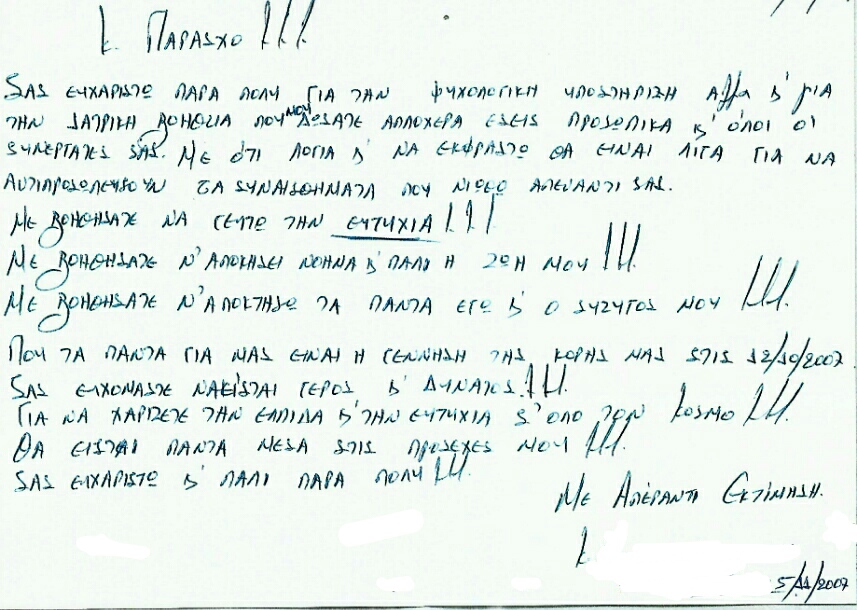 Κ. ΠΑΡΑΣΧΟ!!!
ΣΑΣ ΕΥΧΑΡΙΣΤΩ ΠΑΡΑ ΠΟΛΥ ΓΙΑ ΤΗΝ ΨΥΧΟΛΟΓΙΚΗ ΥΠΟΣΤΗΡΙΞΗ ΑΛΛΑ Κ' ΓΙΑ
ΤΗΝ ΙΑΤΡΙΚΗ ΒΟΗΘΕΙΑ ΠΟΥ ΜΟΥ ΔΩΣΑΤΕ ΑΠΛΟΧΕΡΑ ΕΣΕΙΣ ΠΡΟΣΩΠΙΚΑ Κ' ΌΛΟΙ ΟΙ
ΣΥΝΕΡΓΑΤΕΣ ΣΑΣ. ΜΕ ΌΤΙ ΛΟΓΙΑ Κ' ΝΑ ΕΚΦΡΑΣΤΩ ΘΑ ΕΙΝΑΙ ΛΙΓΑ ΓΙΑ ΝΑ
ΑΝΤΙΠΡΟΣΩΠΕΥΣΟΥΝ ΤΑ ΣΥΝΑΙΣΘΗΜΑΤΑ ΠΟΥ ΝΙΩΘΩ ΑΠΕΝΑΝΤΙ ΣΑΣ.
ΜΕ ΒΟΗΘΗΣΑΤΕ ΝΑ ΓΕΥΤΩ ΤΗΝ ΕΥΤΥΧΙΑ!!!
ΜΕ ΒΟΗΘΗΣΑΤΕ Ν'ΑΠΟΚΗΣΕΙ ΝΟΗΜΑ Κ' ΠΑΛΙ Η ΖΩΗ ΜΟΥ!!!
ΜΕ ΒΟΗΘΗΣΑΤΕ Ν'ΑΠΟΚΤΗΣΩ ΤΑ ΠΑΝΤΑ ΕΓΩ Κ' Ο ΣΥΖΥΓΟΣ ΜΟΥ!!!.
ΠΟΥ ΤΑ ΠΑΝΤΑ ΓΙΑ ΜΑΣ ΕΙΝΑΙ Η ΓΕΝΝΗΣΗ ΤΗΣ ΚΟΡΗΣ ΜΑΣ ΣΤΙΣ 12/10/2007.
ΣΑΣ ΕΥΧΟΜΑΣΤΕ ΝΑ ΕΙΣΤΑΙ ΓΕΡΟΣ Κ' ΔΥΝΑΤΟΣ!!!.
ΓΙΑ ΝΑ ΧΑΡΙΖΕΤΕ ΤΗΝ ΕΛΠΙΔΑ Κ' ΤΗΝ ΕΥΤΥΧΙΑ Σ'ΟΛΟ ΤΟΝ ΚΟΣΜΟ!!!.
ΘΑ ΕΙΣΤΑΙ ΠΑΝΤΑ ΜΕΣΑ ΣΤΙΣ ΠΡΟΣΕΧΕΣ ΜΟΥ!!!.
ΣΑΣ ΕΥΧΑΡΙΣΤΩ Κ' ΠΑΛΙ ΠΑΡΑ ΠΟΛΥ!!!.
ΜΕ ΑΠΕΡΑΝΤΙ ΕΚΤΙΜΗΣΗ.
Κ
5/11/2007